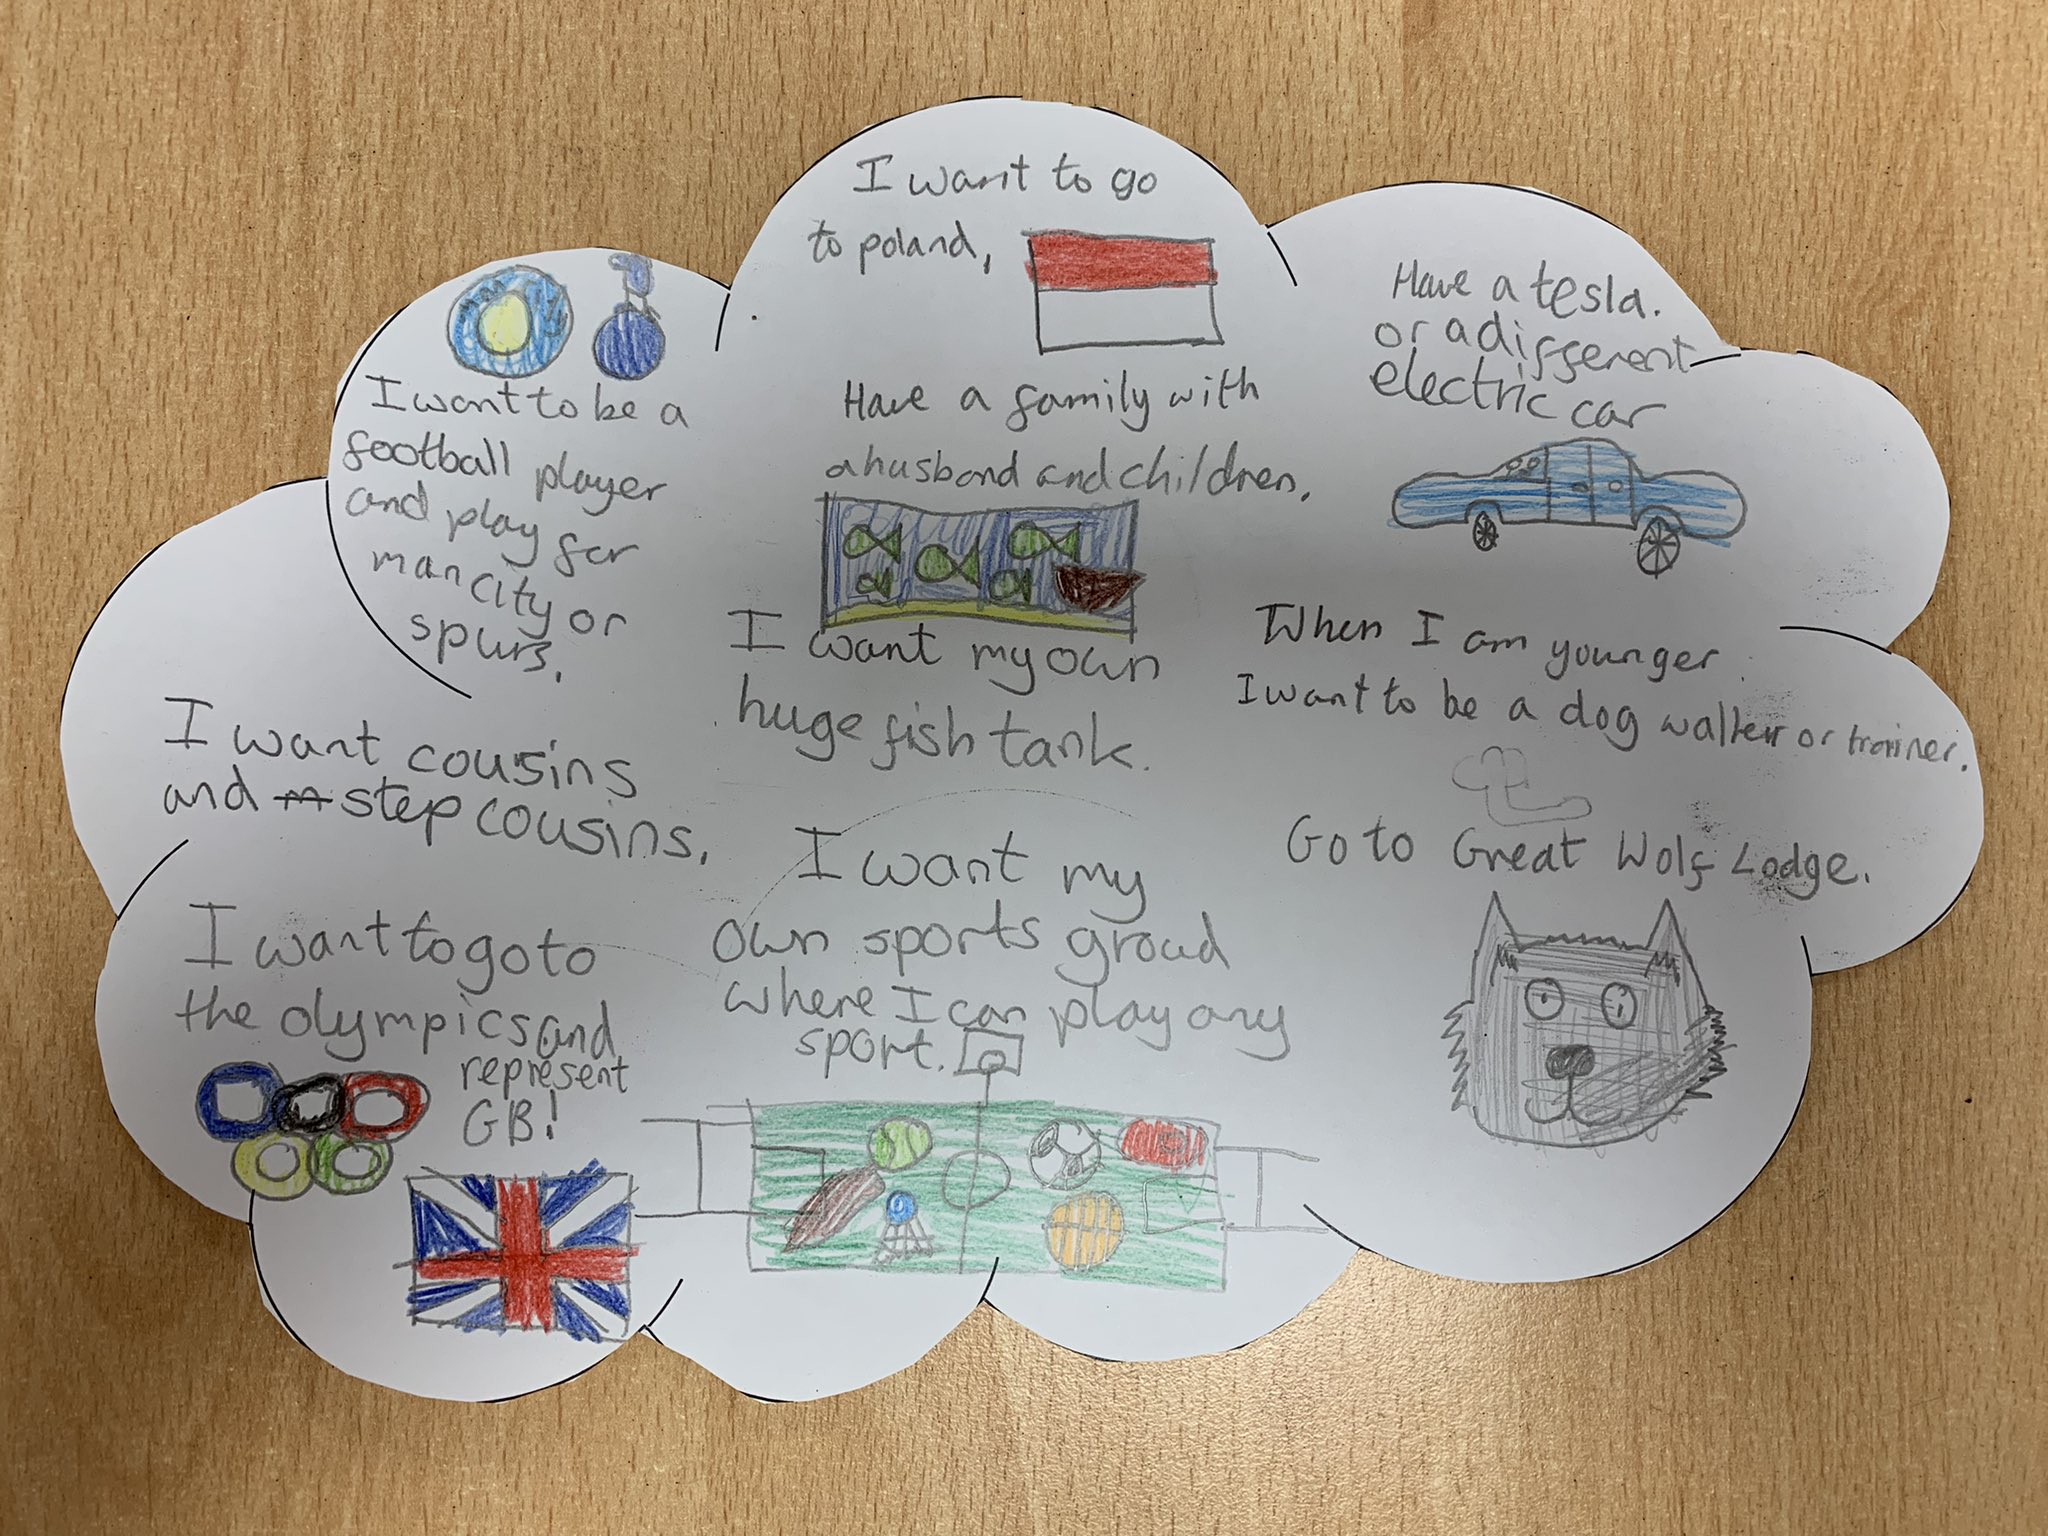 I want to go
to poland,
Have a family with
a husband and children,
I want to be a
football player
and play for
man city or
spurs,
Have a tesla.
or a different
electric car
I want my own
huge fish tank.
When I am younger
I want to be a dog walker or trainer.
I want cousins
and step cousins,
Go to Great Wolf Lodge.
I want my
own sports groud
where I can play any
sport.
I want to go to
the olympics and
represent
GB!